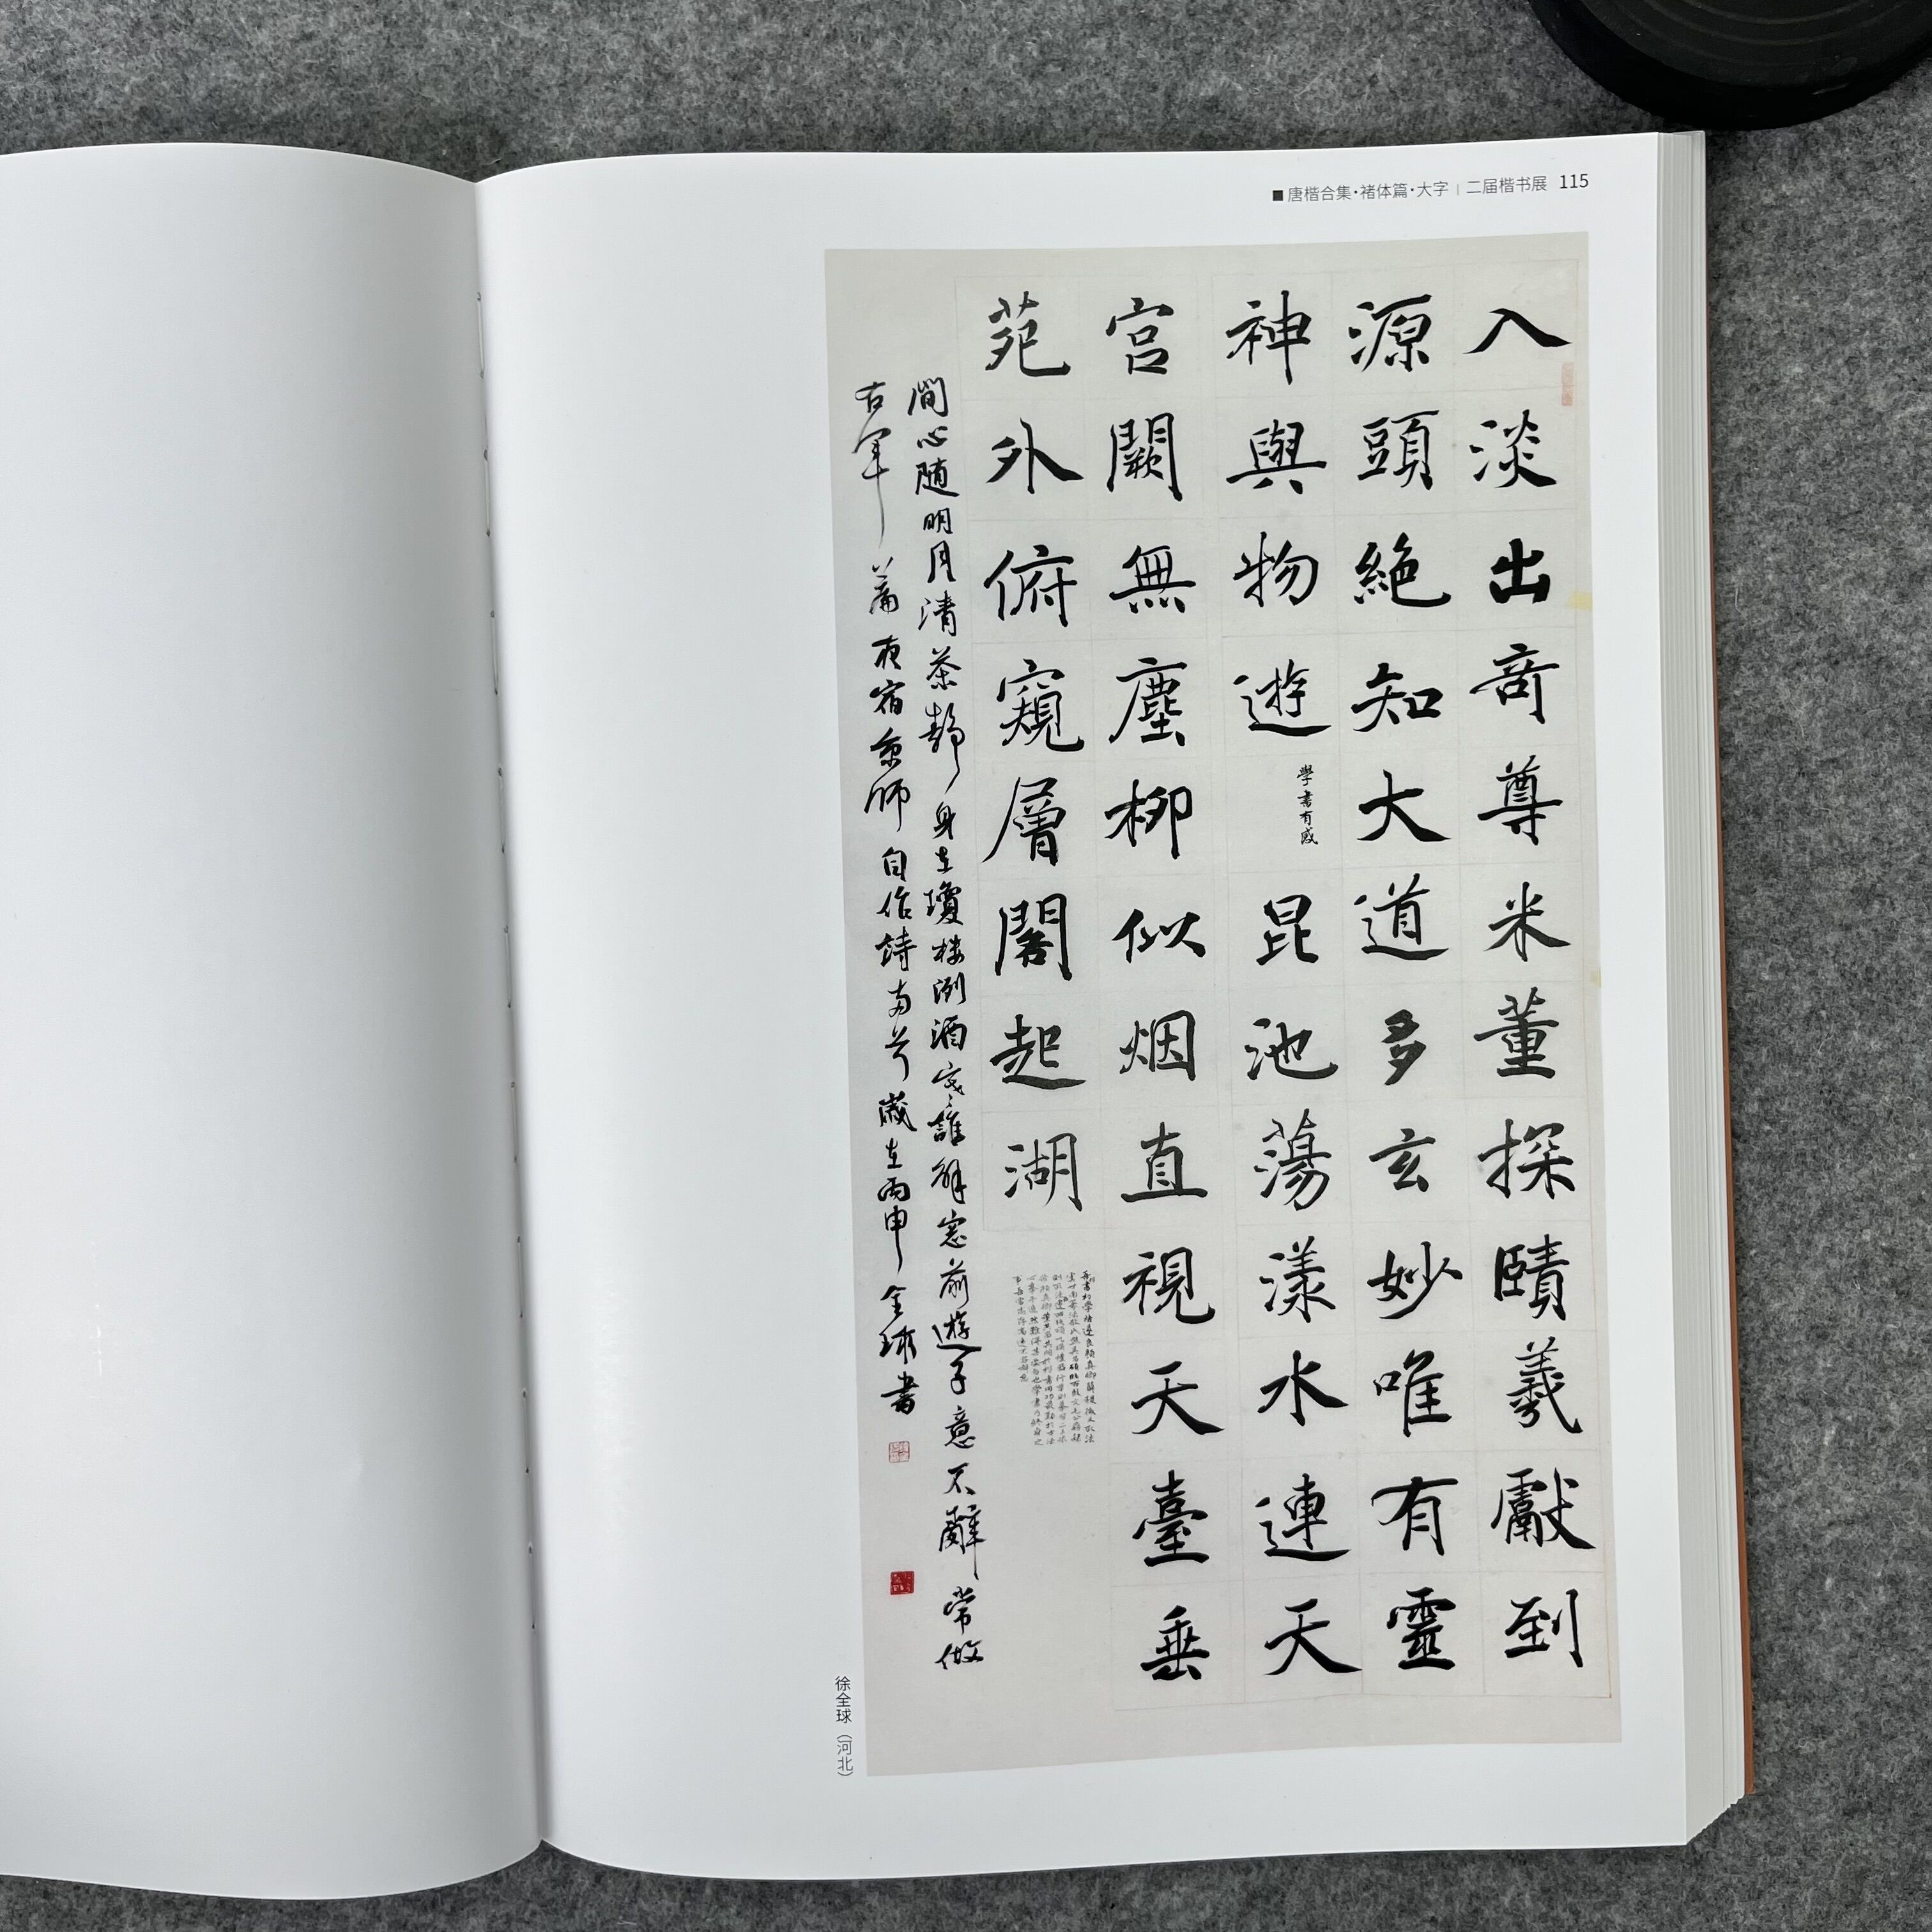 唐楷合集·褚体篇·大字 | 二届楷书展 115
入淡出奇尊米董探賾羲獻到
源頭絶知大道多玄妙唯有靈
神與物遊 學書有感 昆池蕩漾水連天
宫闕無塵柳似烟直視天臺垂
苑外俯窺層閣起湖
間心随明月清茶静身在瓊楼冽酒寒誰解窓前遊子意不辭常做
右軍篇夜宿京師自作詩两首歲在丙申全球書
徐全球（河北）